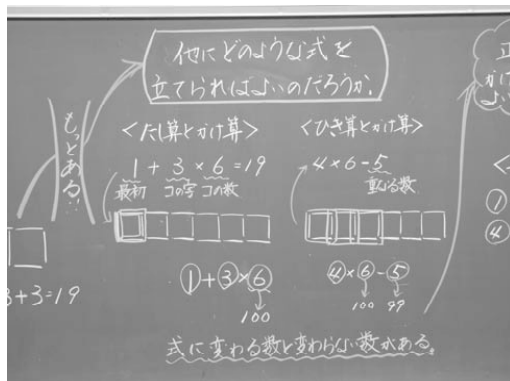 他にどのような式を
立てられればよいのだろうか。
もっとある!!
<たし算とかけ算>
1+3×6=19
最初 コの字 コの数
①+③×⑥
100
<ひき算とかけ算>
4×6-5
重なる数
④×⑥-⑤
100 99
3+3=19
式に変わる数と変わらない数がある。
立
①
④